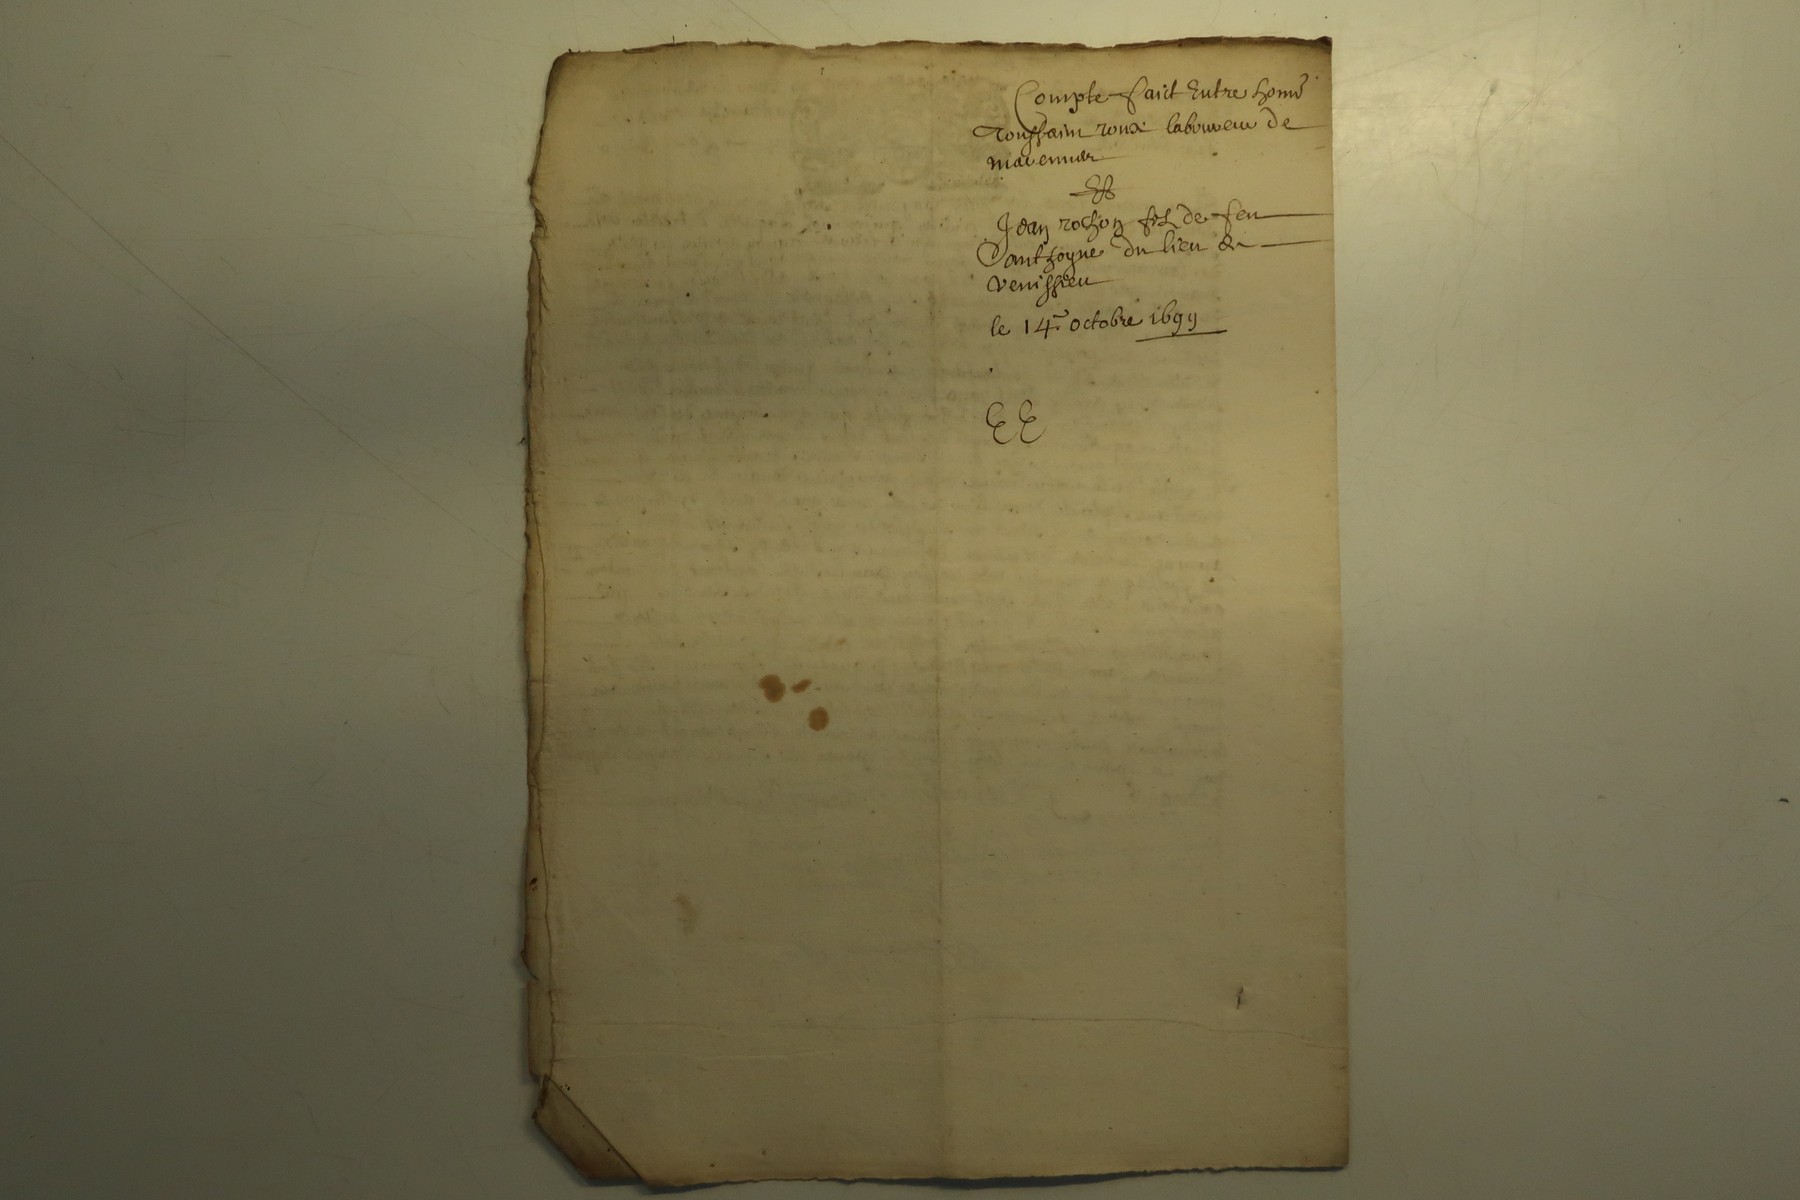 Compte faict Entre honnê
Toussaint roux laboureur de
Et
Jean rochon filz de feu
anthoyne du lieu de
venissieu
le 14.e octobre 1699
EE